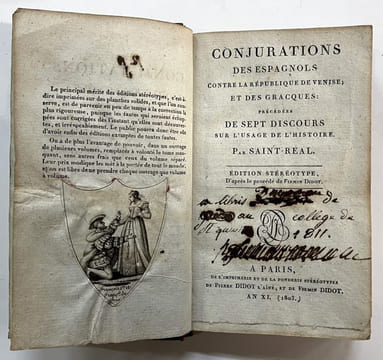 Le principal mérite des éditions stéréotypes, c'est-à-
dire imprimées sur des planches solides, et que l'on con-
serve, est de parvenir en peu de temps à la correction la
plus rigoureuse, puisque les fautes qui seraient échap-
pées sont corrigées dès l'instant qu'elles sont décou-
vertes, et irrévocablement. Le public pourra donc être sûr
d'avoir enfin des éditions exemptes de toutes fautes.
On a de plus l'avantage de pouvoir, dans un ouvrage
de plusieurs volumes, remplacer à volonté le tome man-
quant, sans autres frais que ceux du volume séparé.
Leur prix modique les met à la portée de tout le monde,
et on est libre de ne prendre chaque ouvrage que volume
à volume.
CONJURATIONS
DES ESPAGNOLS
CONTRE LA RÉPUBLIQUE DE VENISE;
ET DES GRACQUES:
PRÉCÉDÉES
DE SEPT DISCOURS
SUR L'USAGE DE L'HISTOIRE.
PAR SAINT-RÉAL.
ÉDITION STÉRÉOTYPE,
D'après le procédé de FIRMIN DIDOT.
libris de
au collège de
1811.
A PARIS,
DE L'IMPRIMERIE ET DE LA FONDERIE STÉRÉOTYPES
DE PIERRE DIDOT L'AÎNÉ, ET DE FIRMIN DIDOT.
AN XI. (1803.)